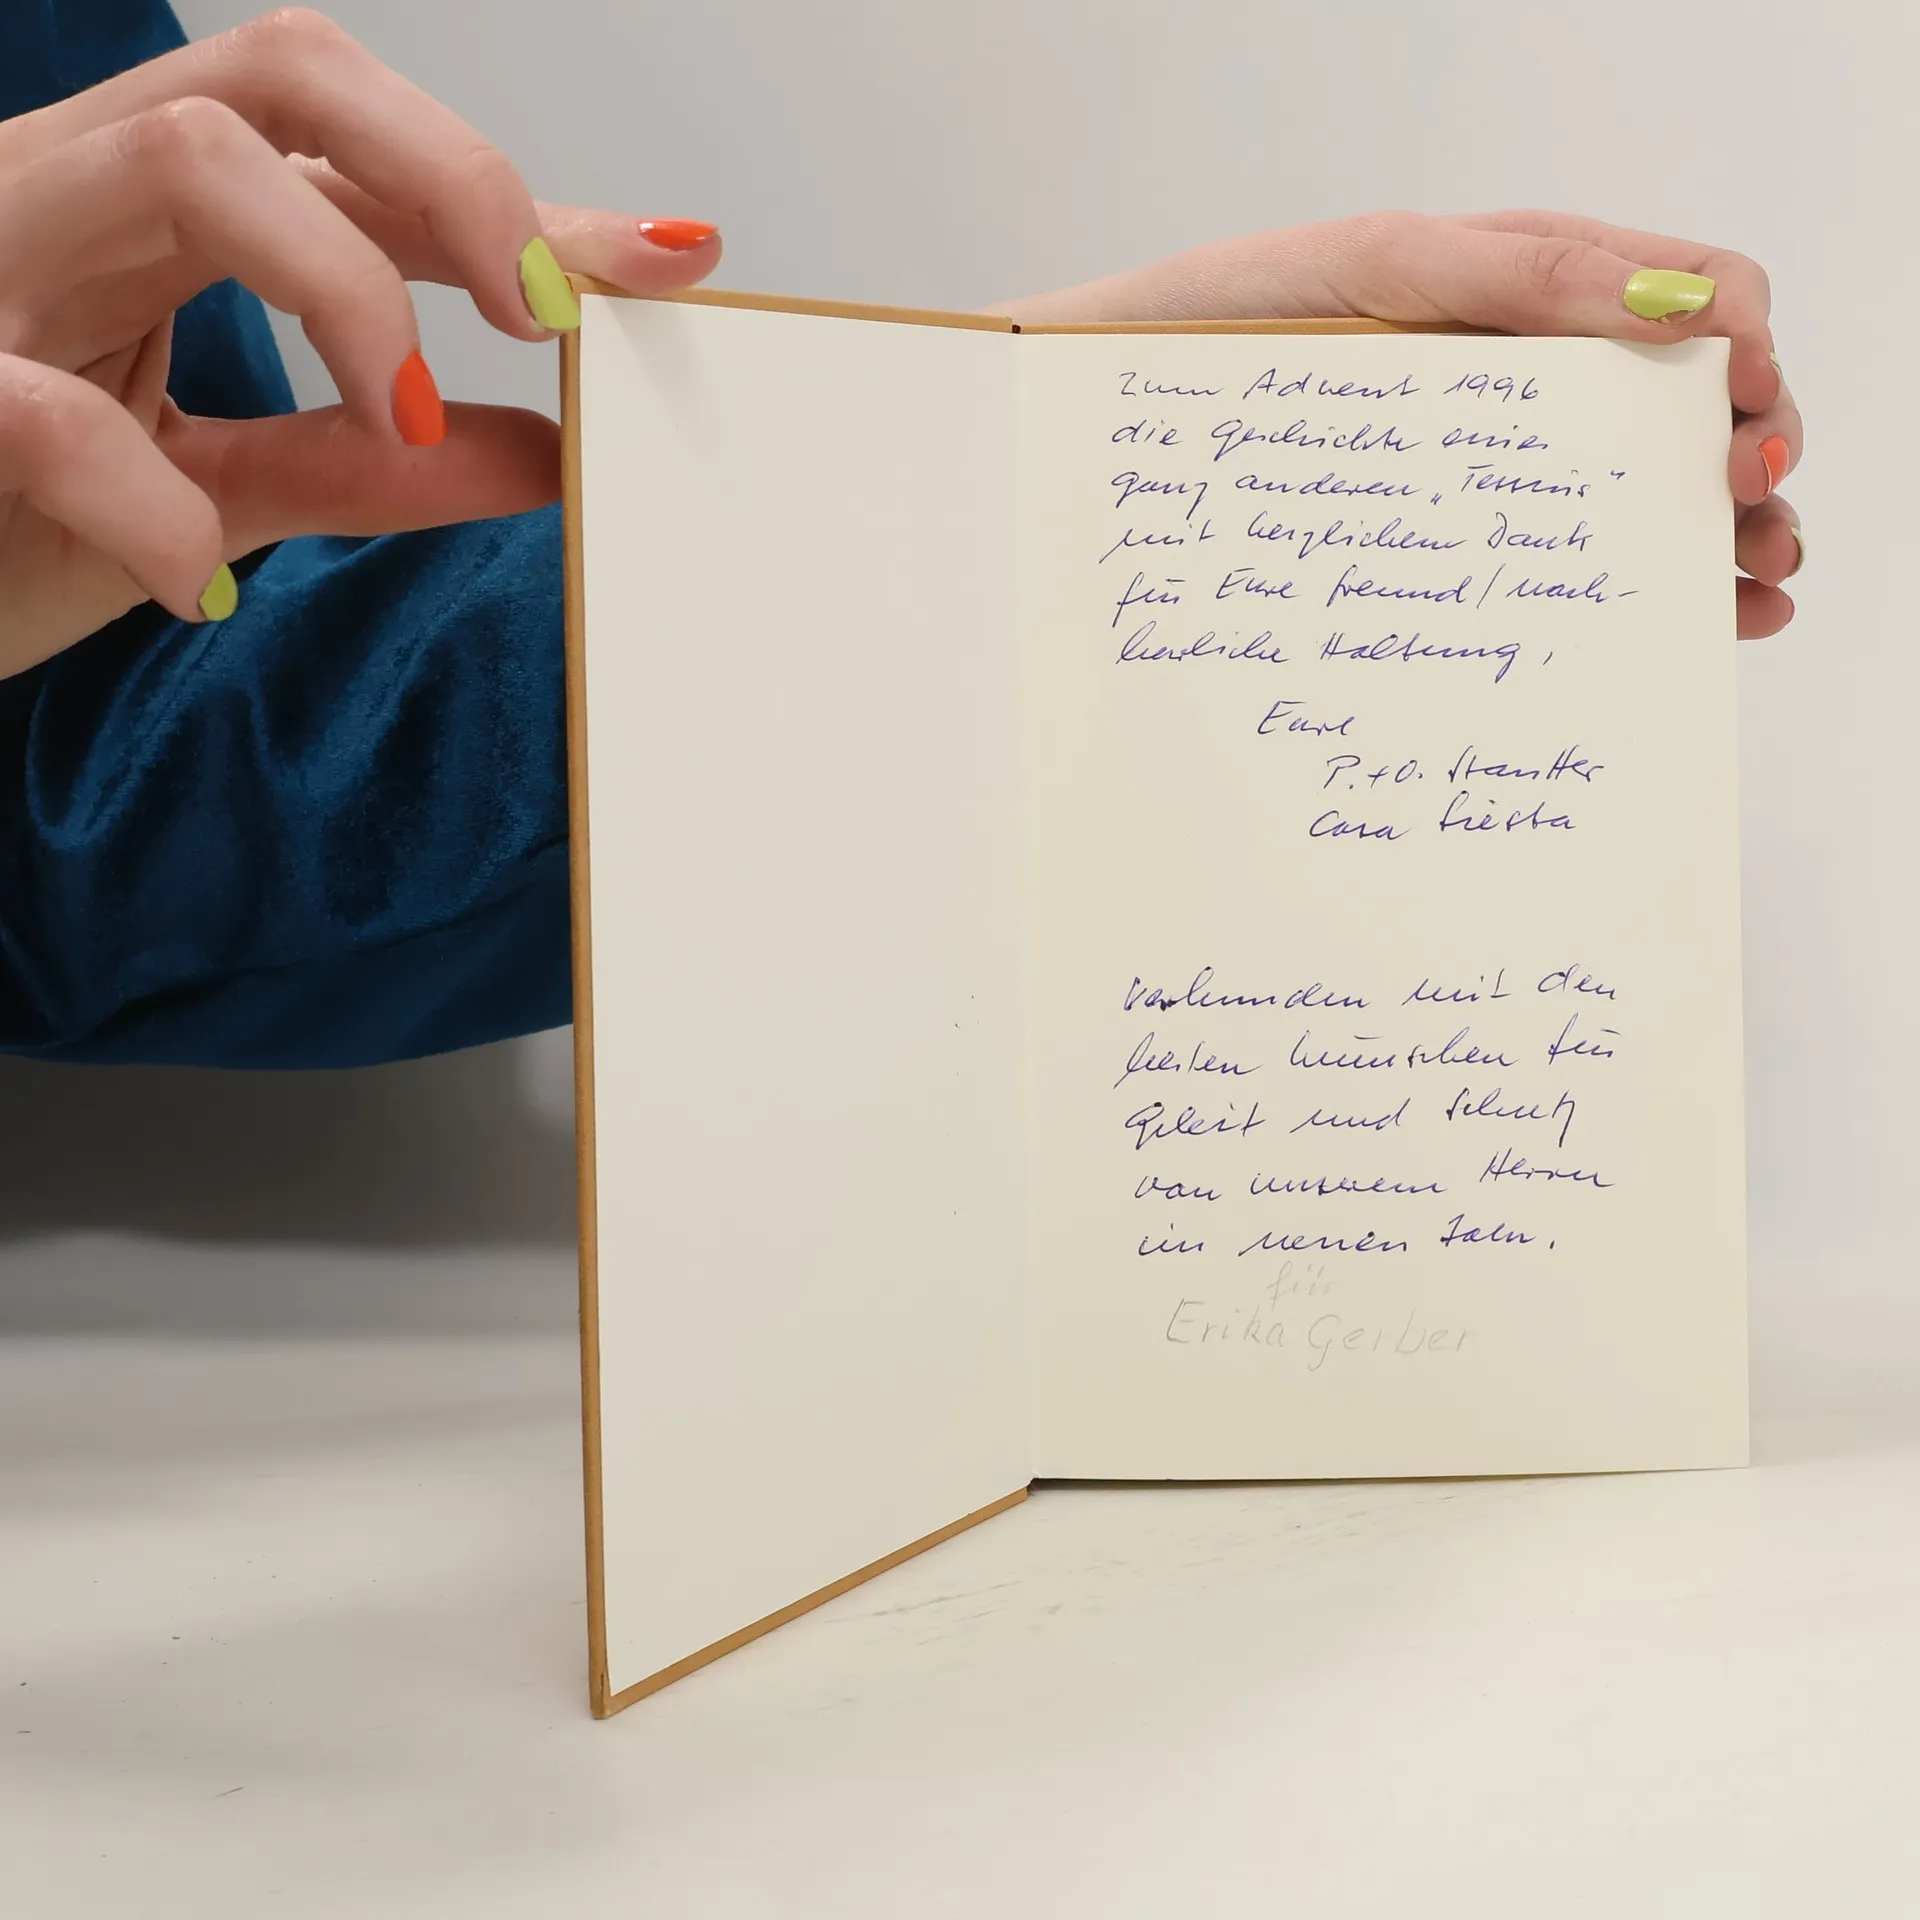 Zum Advent 1996
die Geschichte eines
ganz anderen „Tessins“
mit herzlichem Dank
für Eure freund/nach-
barliche Haltung,
Eure
P.+O.
Casa Siesta
verbunden mit den
besten Wünschen für
Geleit und Schutz
von unserem Herrn
im neuen Jahr.
für
Erika Gerber